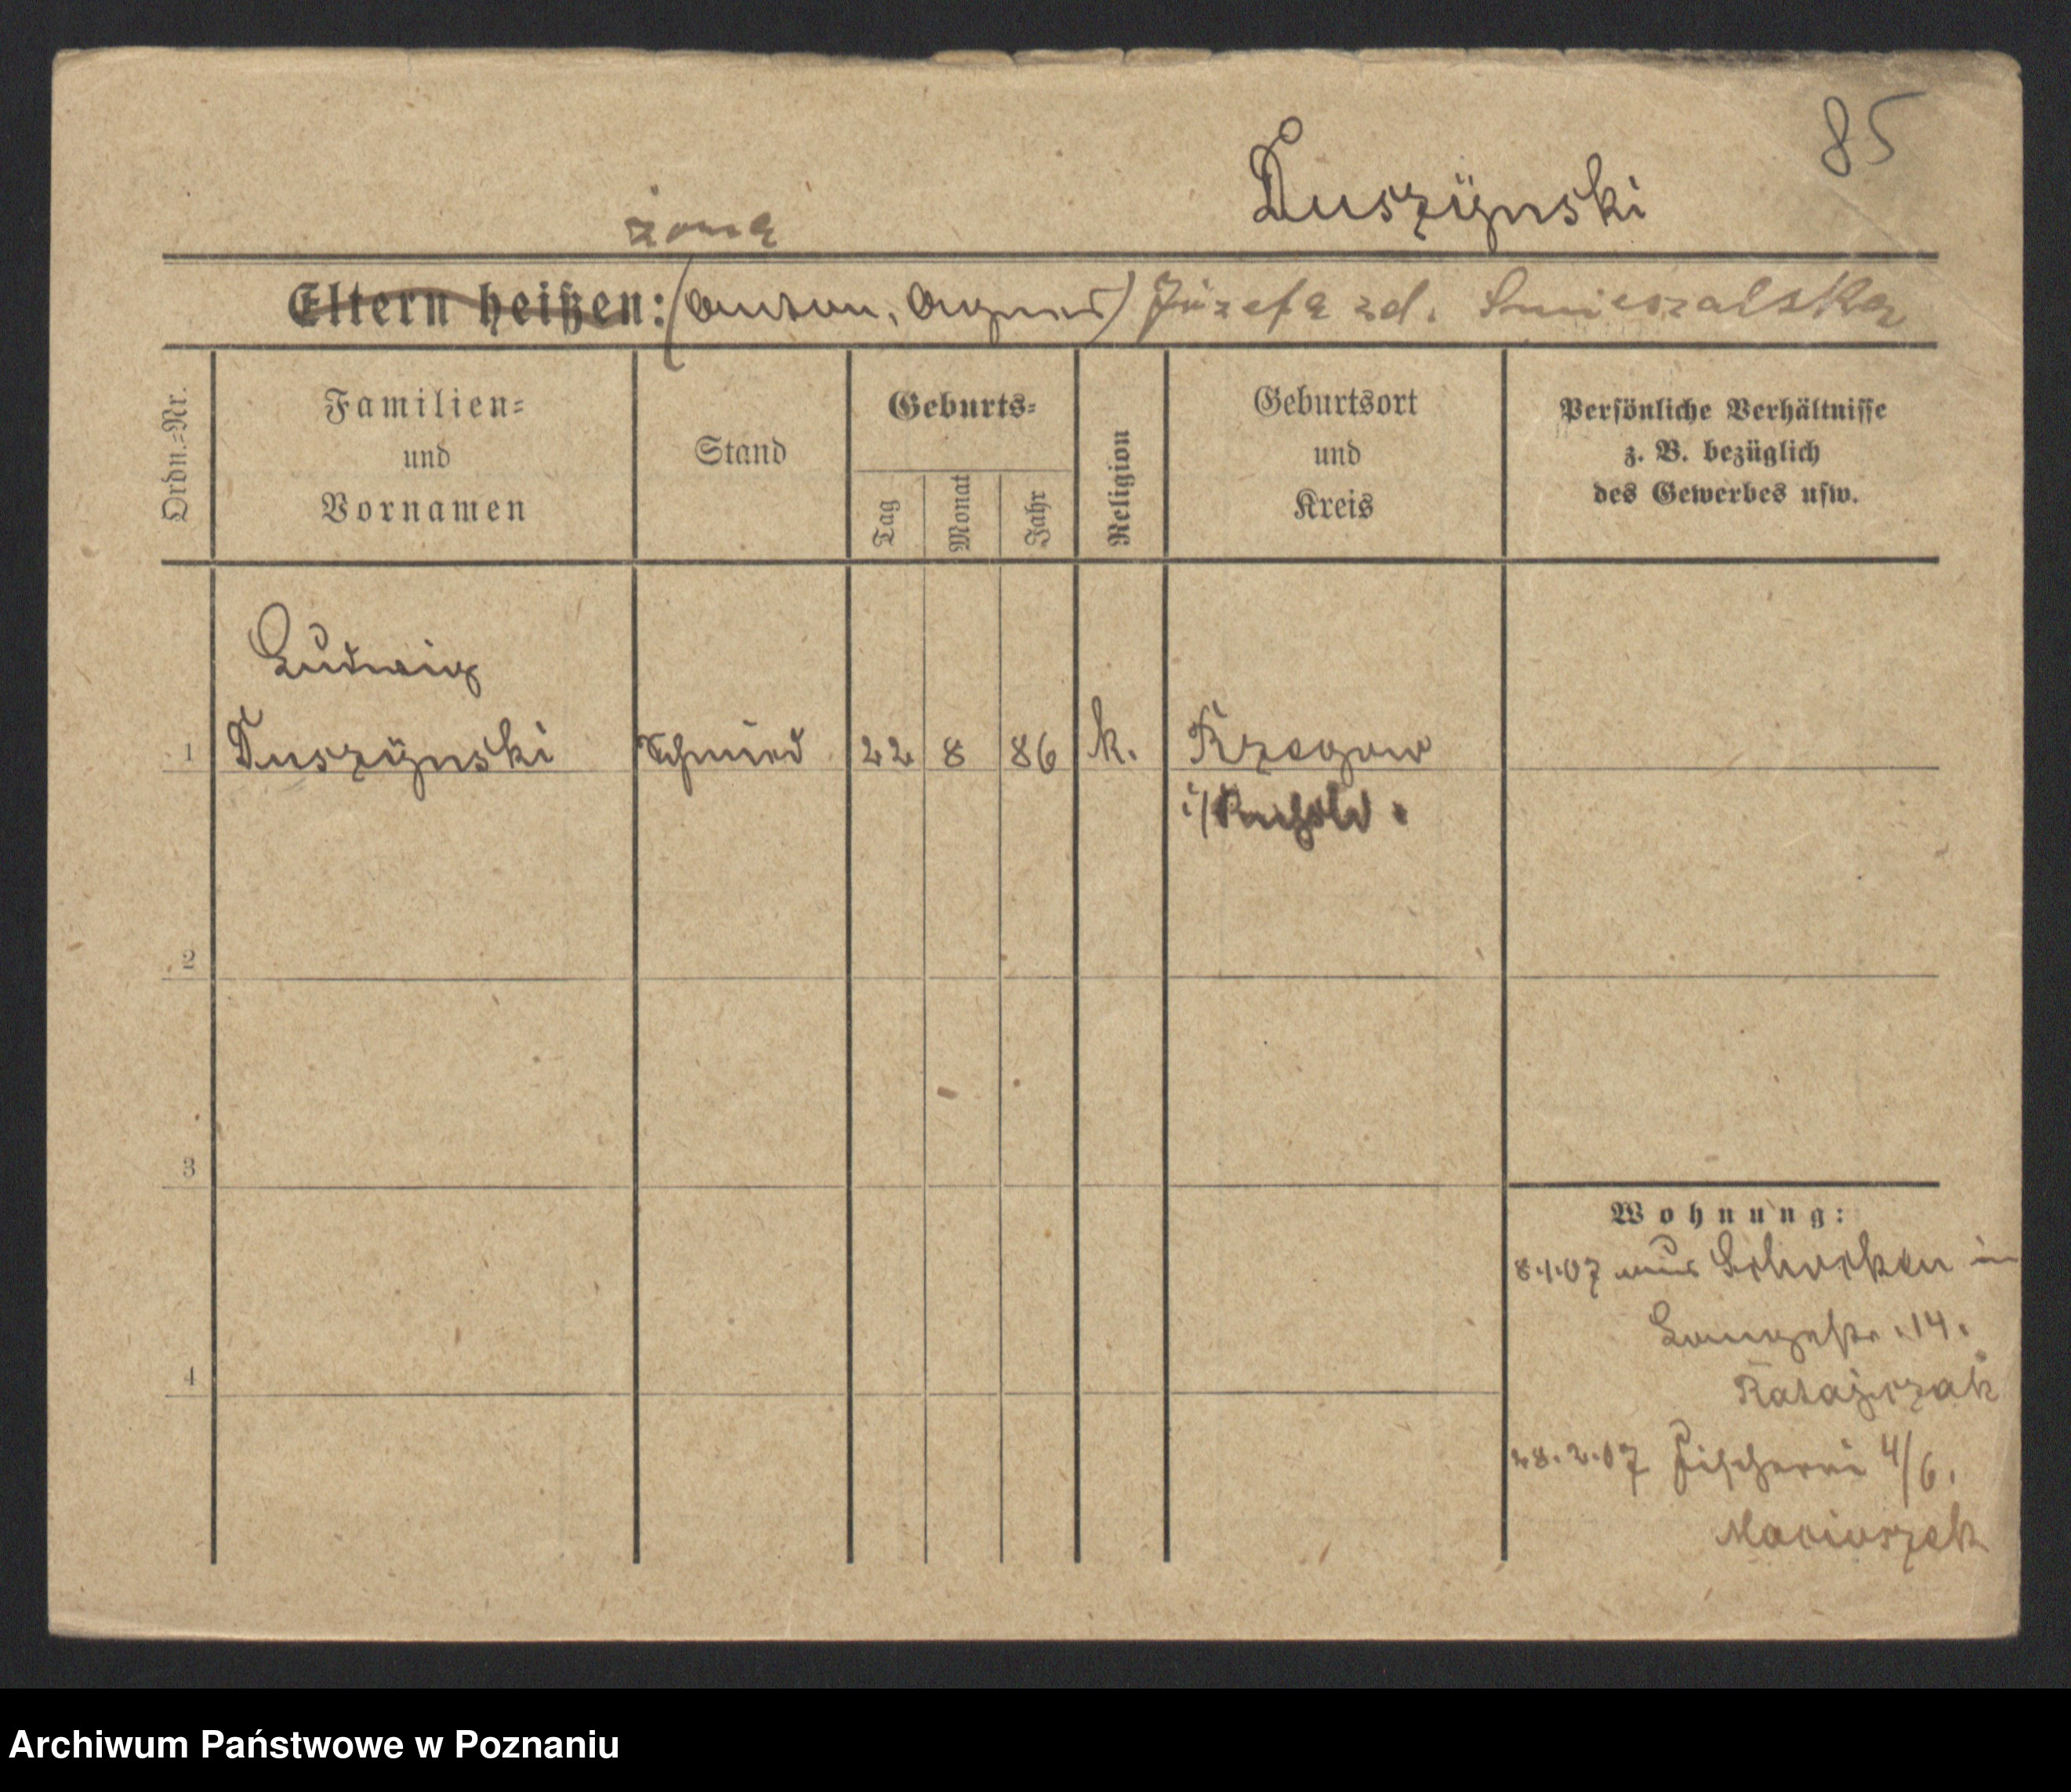 85
Duszÿnski
żona
Eltern heißen: (Anton, Agnes) Józefa zd. Smieszalska
Ordn.=Nr.
Familien=
und
Vornamen
Stand
Geburts=
Tag
Monat
Jahr
Religion
Geburtsort
und
Kreis
Persönliche Verhältnisse
z. B. bezüglich
des Gewerbes usw.
Ludwig
1 Duszÿnski Schmied 22 8 86 k.
i/
2
3
4
Wohnung:
8.1.07 aus Schocken in
Langestr. 14.
Ratajczak
28.2.07 Fischerei 4/6.
Maciaszek
Archiwum Państwowe w Poznaniu